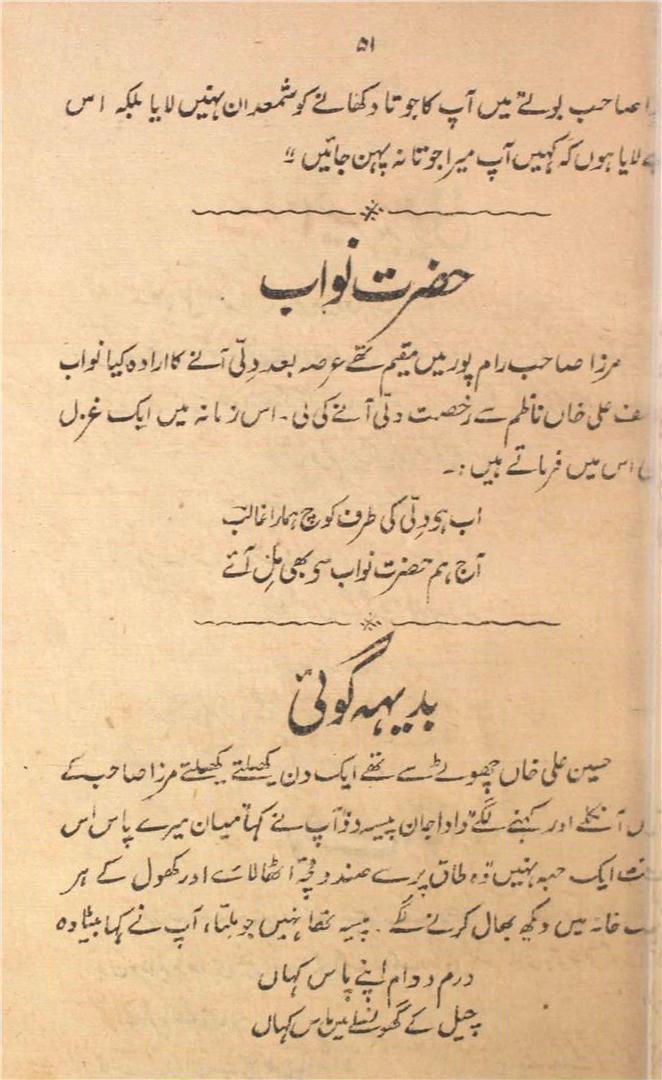 ۵۱
صاحب بولے میں آپ کا جوتا دکھانے کو شمعدان نہیں لایا بلکہ اس
لایا ہوں کہ کہیں آپ میرا جوتا نہ پہن جائیں"
حضرت نواب
مرزا صاحب رام پور میں مقیم تھے عرصہ بعد دِلّی آنے کا ارادہ کیا نواب
علی خاں ناظم سے رخصت دلّی آنے کی لی۔ اس زمانہ میں ایک غزل
اس میں فرماتے ہیں:۔
اب ہے دِلّی کی طرف کوچ ہمارا غالبؔ
آج ہم حضرت نواب سے بھی مِل آئے
بدیہہ گوئی
حسین علی خاں چھوٹے سے تھے ایک دن کھیلتے کھیلتے مرزا صاحب کے
آنکلے اور کہنے لگے "دادا جان پیسہ دو" آپ نے کہا "میاں میرے پاس اس
ایک حبہ نہیں" وہ طاق پر سے صندوقچہ اٹھا لائے اور کھول کے ہر
خانہ میں دیکھ بھال کرنے لگے۔ پیسہ تھا نہیں جو ملتا، آپ نے کہا بیٹا وہ
درم و دام اپنے پاس کہاں
چیل کے گھونسلے میں ماس کہاں